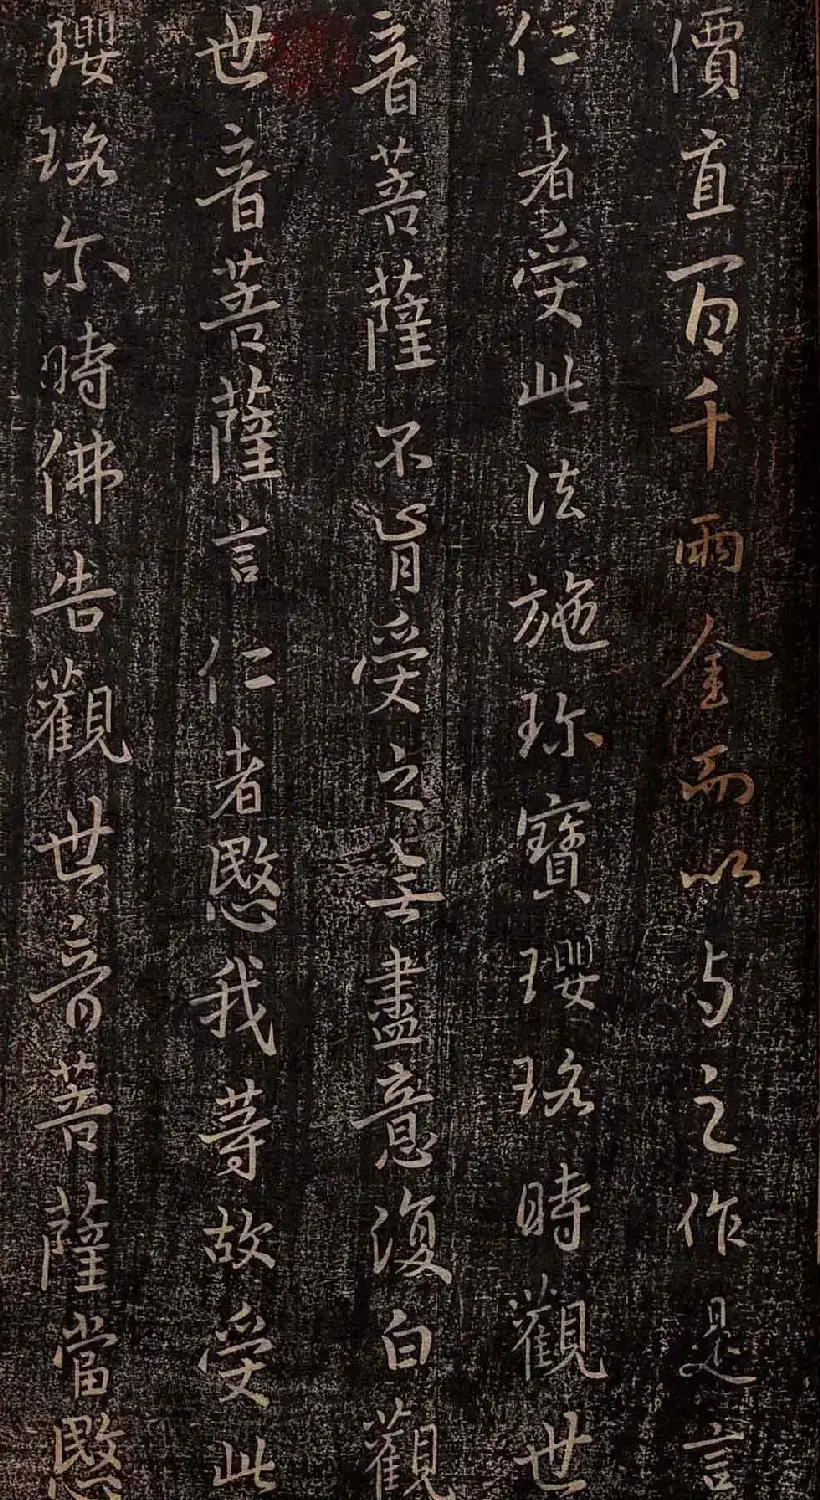 價直百千兩金而以与之作是言
仁者受此法施珎寶瓔珞時觀世
音菩薩不肯受之无盡意復白觀
世音菩薩言仁者愍我等故受此
瓔珞尒時佛告觀世音菩薩當愍